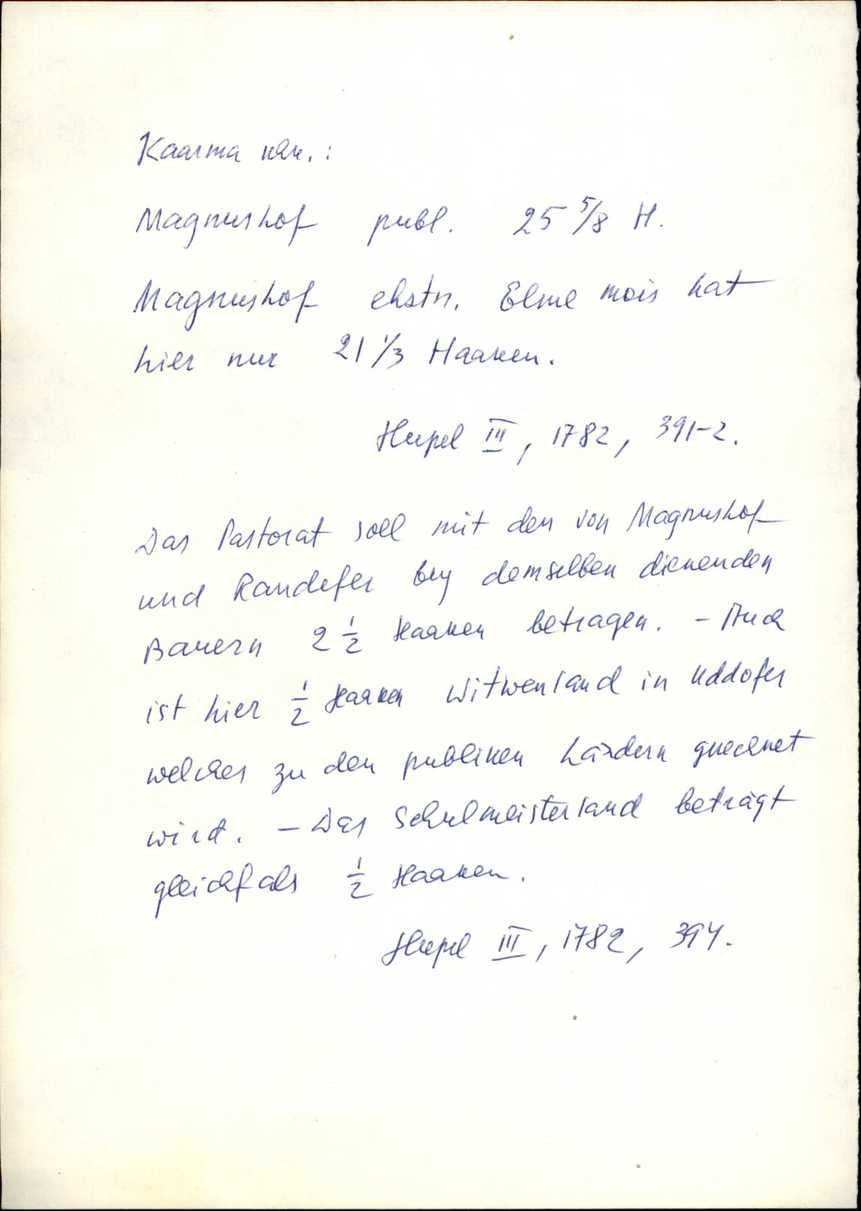 Kaarma khk.:
Magnushof publ. 25 5/8 H.
Magnushof ehstn. Elme mois hat
hier nur 21 1/3 Haaken.
Hupel III, 1782, 391-2.
Das Pastorat soll mit den von Magnushof
und Randefer bey demselben dienenden
Bauern 2 1/2 Haaken betragen. – Auch
ist hier 1/2 Haaken Witwenland in Uddofer
welches zu den publiken Ländern gerechnet
wird. – Das Schulmeisterland beträgt
gleichfals 1/2 Haaken.
Hupel III, 1782, 394.